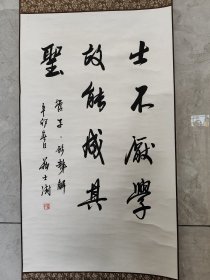 士不厭學
故能成其
聖
管子·形勢解
辛卯春日 蘇士澍